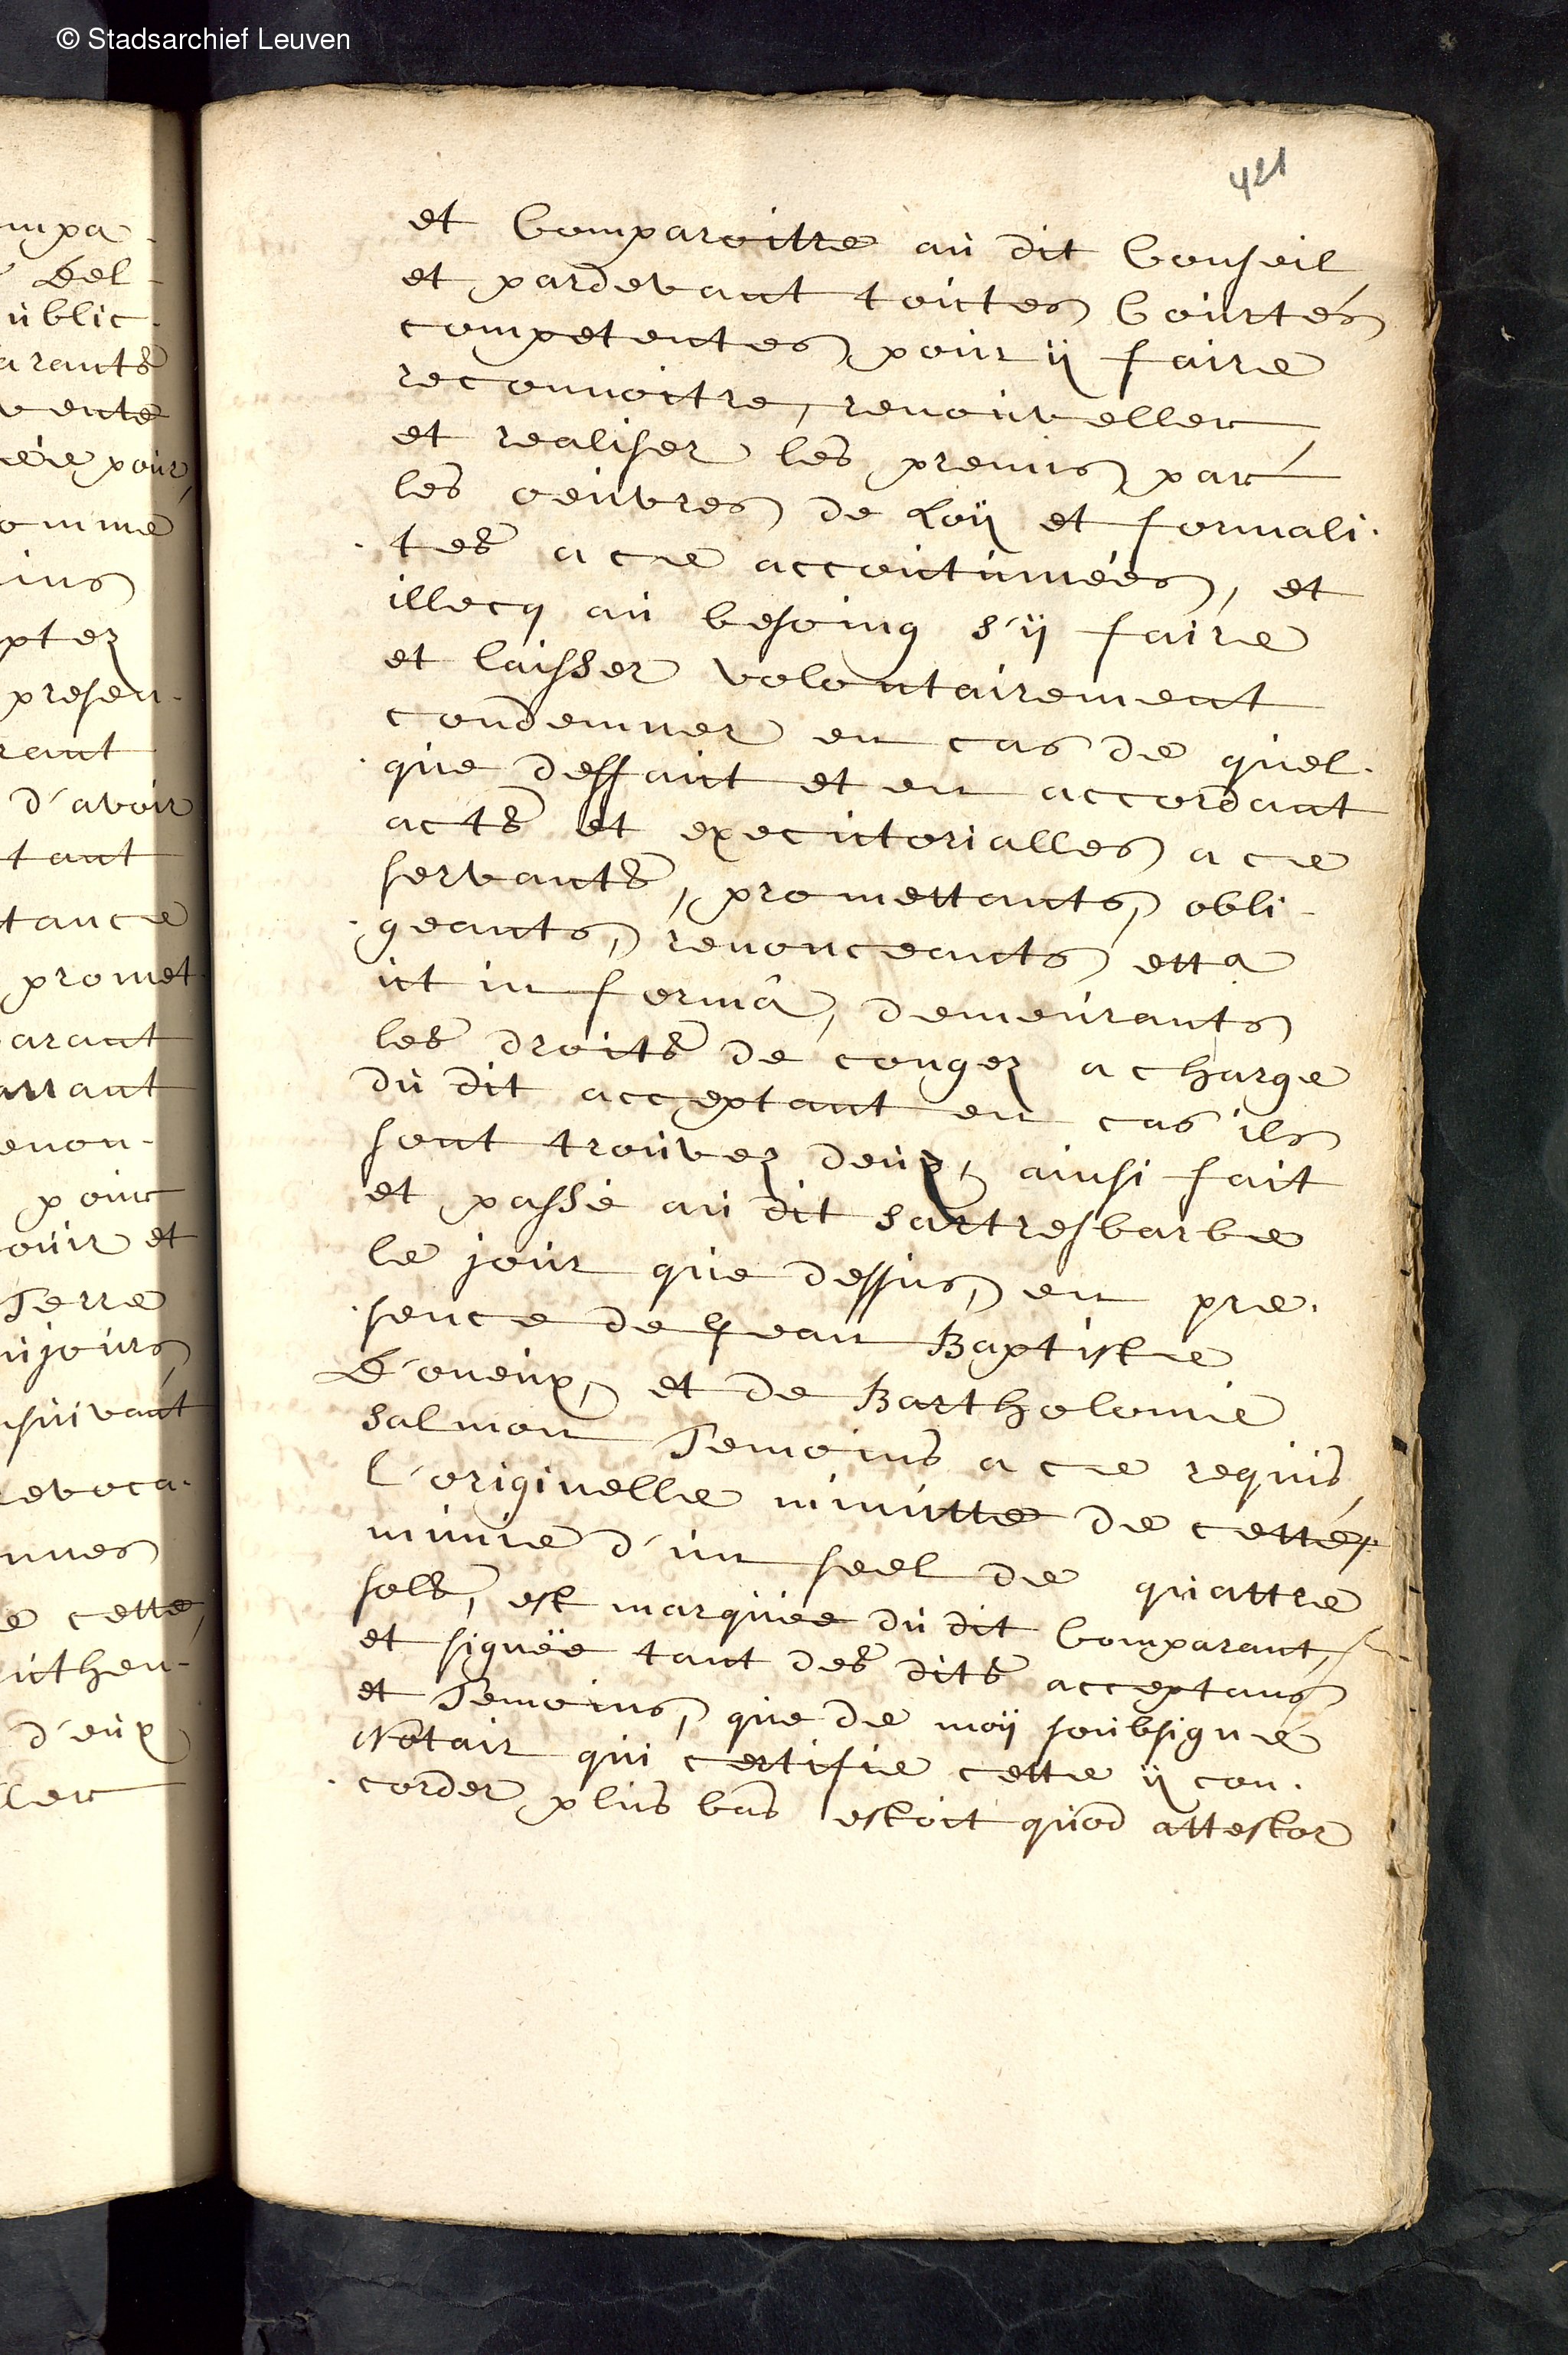 © Stadsarchief Leuven
421
et Comparoitre au dit Conseil
et pardevant toutes Courtes
competentes, pour ij faire
reconnoitre, renouveller
et realiser les premis par
les oeuvres de Loij et formali-
tes a ce accoutumées, et
illecq au besoing s'ij faire
et laisser volontairement
condemner en cas de quel-
que deffaut et en accordant
acts et executorialles a ce
servants, promettants, obli-
geants, renonceants etta
ut in formâ, demeurants
les droits de congez a charge
du dit acceptant en cas ils
sont trouvez deux, ainsi fait
et passé au dit sartresbarbe
le jour que dessus, en pre-
sence de Jean Baptiste
D'oneux, et de Bartholomé
salmon Temoins a ce requis,
l'originelle minutte de cette,
munie d'un seel de quattre
sols, est marquée du dit Comparant,
et signée tant des dits acceptans
et Temoins, que de moij soubsigné
Notair qui certifie cette ij con-
corder plus bas estoit quod attestor
mpa-
Del-
ublic
arants
vente
pour,
omme
ins
ptez
presen-
rant
d'avoir
tant
tance
promet-
arant
arrant
enon-
pour
our et
Terre
ujours,
suivant
revoca-
nnes
e cette,
uthen-
d'eux
ller